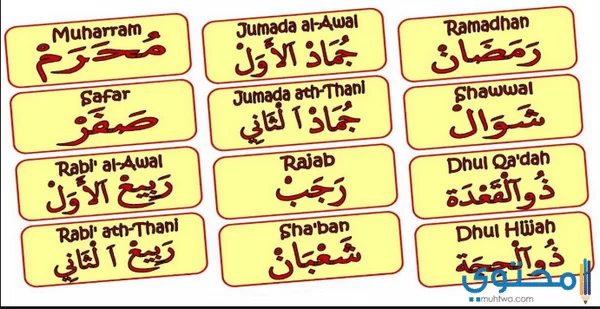 Muharram
مُحَرَمْ
Safar
صَفَرْ
Rabi' al-Awal
رَبِيعْ الأَوَلْ
Rabi' ath-Thani
رَبِيعْ الْثَانِي
Jumada al-Awal
جُمَادْ الأَوَلْ
Jumada ath-Thani
جُمَادْ الْثَانِي
Rajab
رَجَبْ
Sha'ban
شَعْبَانْ
Ramadhan
رَمَضَانْ
Shawwal
شَوَالْ
Dhul Qa'dah
ذُوالْقَعْدَة
Dhul Hijjah
ذُوالْحِجَة
محتوى
muhtwa.com